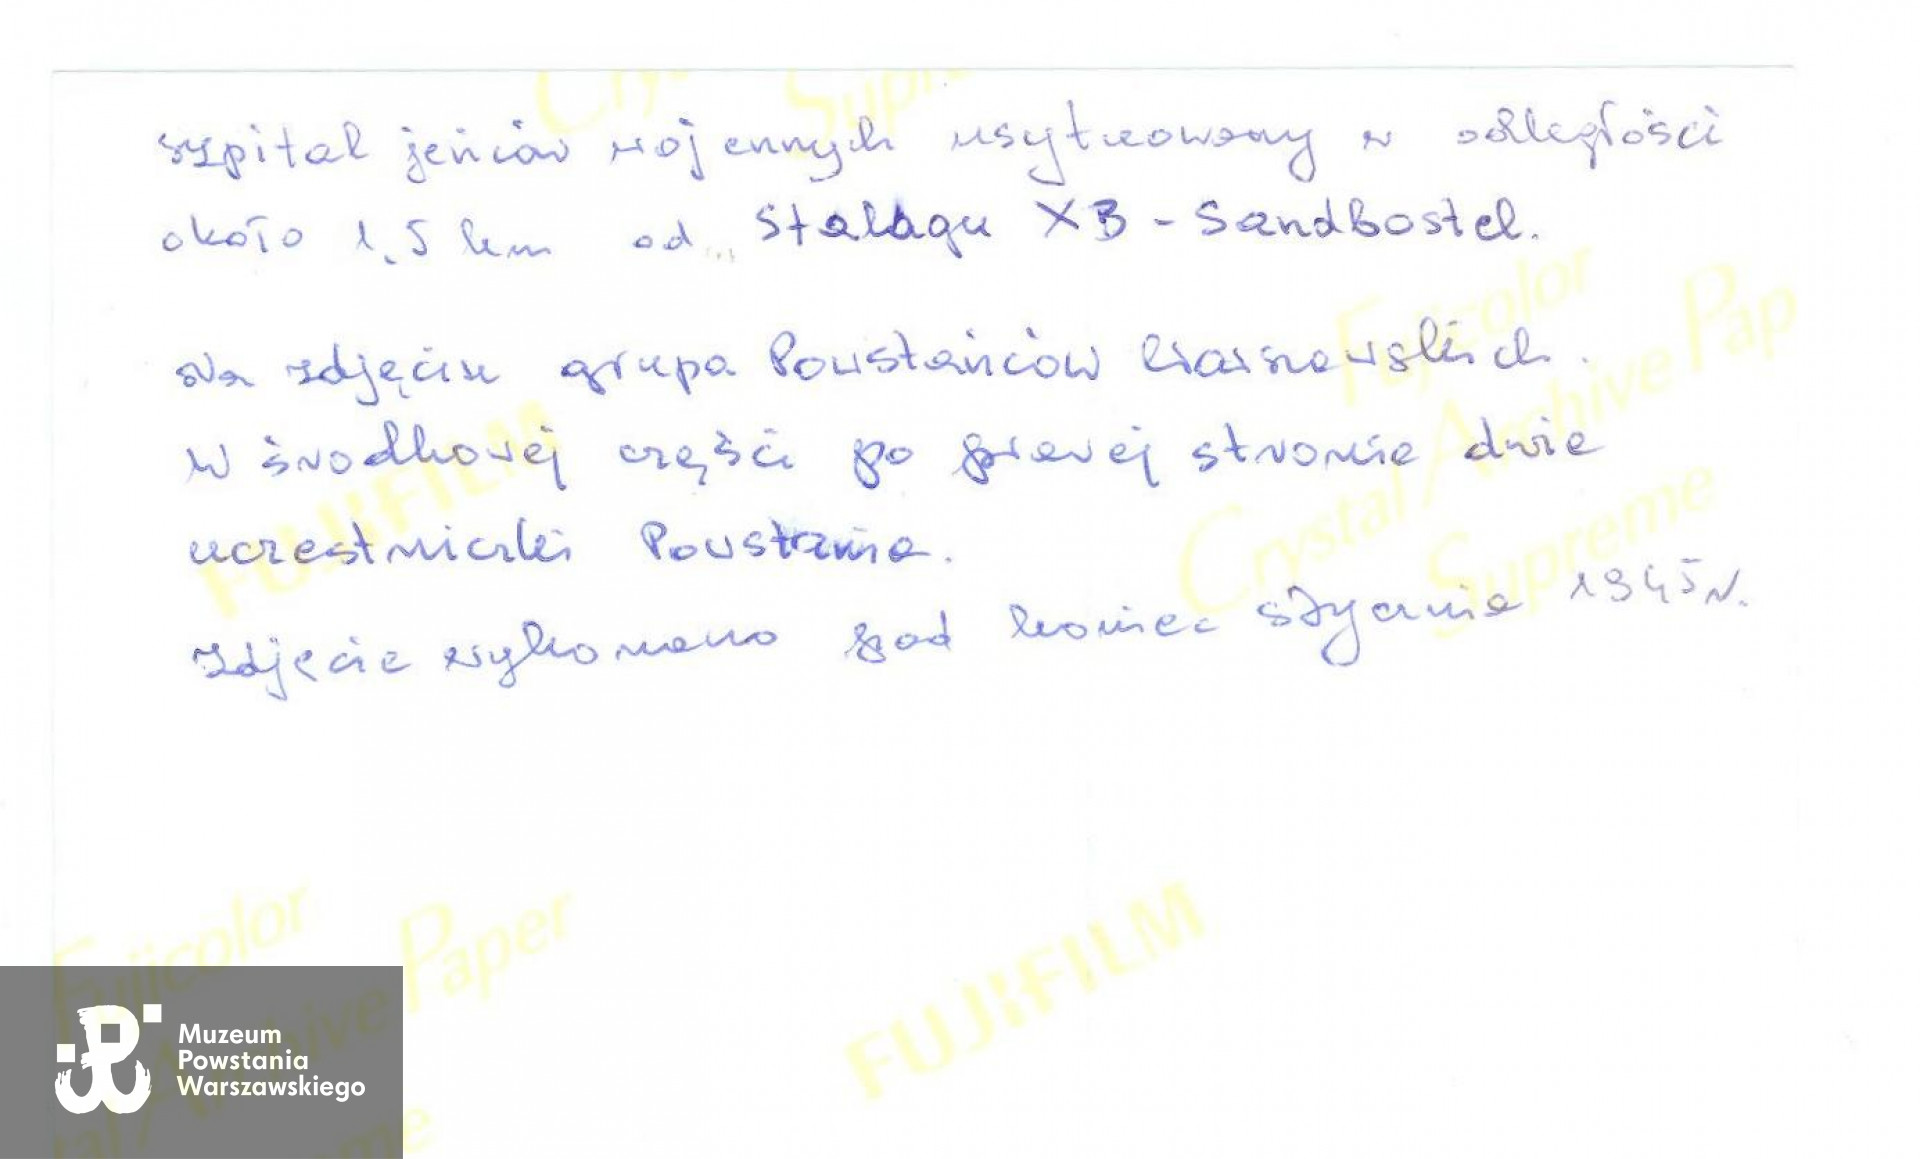 Szpital jeńców wojennych usytuowany w odległości
około 1,5 km od Stalagu XB - Sandbostel.
Na zdjęciu grupa Powstańców Warszawskich.
W środkowej części po prawej stronie dwie
uczestniczki Powstania.
Zdjęcie wykonano pod koniec stycznia 1945 r.
Crystal
Supreme
Fujicolor
Crystal Archive Pap
Supreme
FUJIFILM
Fujicolor
Archive Paper
FUJIFILM
Muzeum
Powstania
Warszawskiego